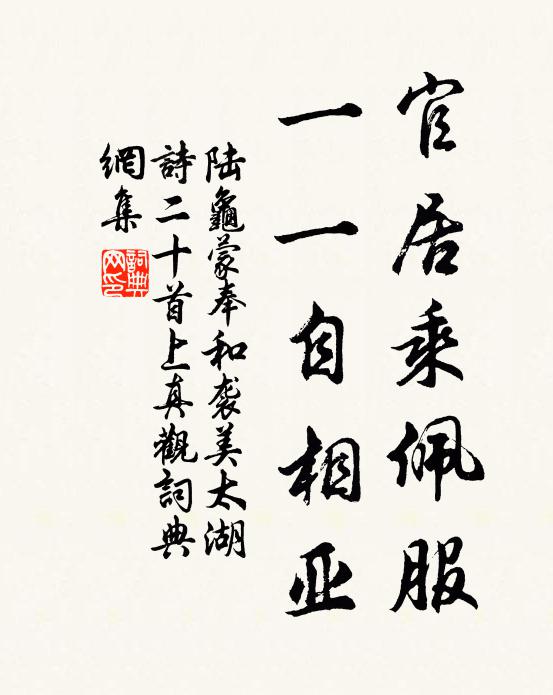 官居乘佩服
一一自相亚
陆龜蒙奉和袭美太湖
詩二十首上真觀詞典
網集
詞典网印